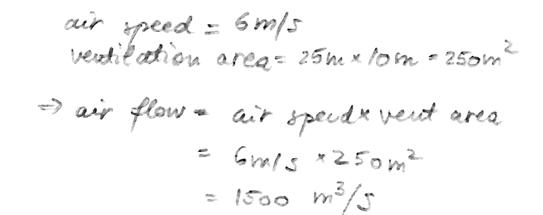 air speed = 6m/s
ventilation area = 25m × 10m = 250m²
⇒ air flow = air speed × vent area
= 6m/s × 250m²
= 1500 m³/s